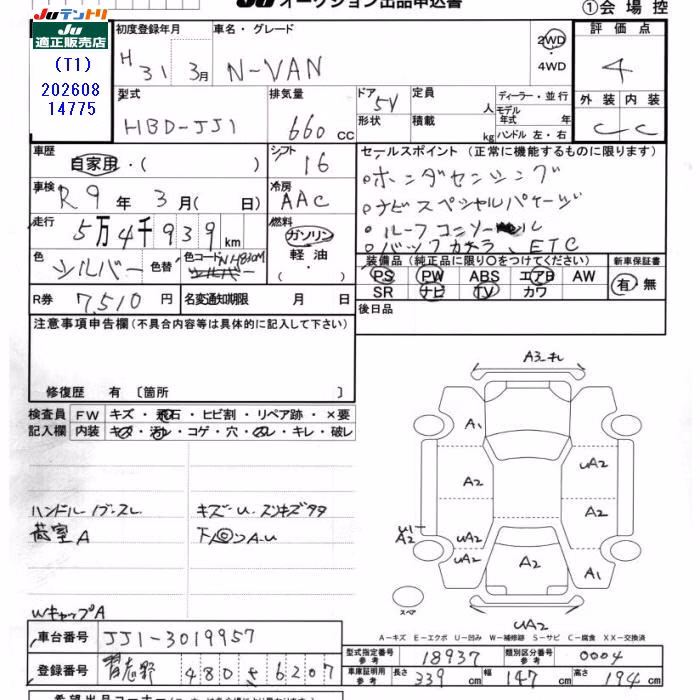 Juテントリ
Ju
適正販売店
(T1)
202608
14775
Ju オークション出品申込書
①会場控
初度登録年月
H31 3月
車名・グレード
N-VAN
2WD
4WD
評価点
4
外装 内装
C C
型式
HBD-JJ1
排気量
660 cc
ドア
5V
形状
定員
人
積載
kg
ディーラー・並行
モデル年式 年
ハンドル 左・右
車歴
自家用・( )
シフト
16
車検
R9年 3月( 日)
冷房
AAC
走行
5万4千939km
燃料
ガソリン
軽油
( )
色
シルバー
色替
色コード NH830M
シルバー
R券
7,510円
名変通知期限 月 日
セールスポイント(正常に機能するものに限ります)
ホンダセンシング
ナビスペシャルパケージ
ルーフコンソール
バックカメラ、ETC
装備品(純正品に限り○をつけてください)
PS PW ABS エアB AW
SR ナビ TV カワ
新車保証書
有・無
後日品
注意事項申告欄(不具合内容等は具体的に記入して下さい)
修復歴 有〔箇所 〕
検査員 FW キズ・飛石・ヒビ割・リペア跡・×要
記入欄 内装 キズ・汚レ・コゲ・穴・スレ・キレ・破レ
ハンドル
荷室A
キズ-U.
A-U
WキャップA
A3
A1
UA2
A2
UA2
A2
U1
A2
UA2
UA2
A2
A1
スペア
UA2
A-キズ E-エクボ U-凹み W-補修跡 S-サビ C-腐食 XX-交換済
車台番号
JJ1-3019957
登録番号
習志野 480 さ 6207
型式指定番号 参考
18937
類別区分番号 参考
0004
車庫証明用 参考
長さ 339 cm 幅 147 cm 高さ 194 cm